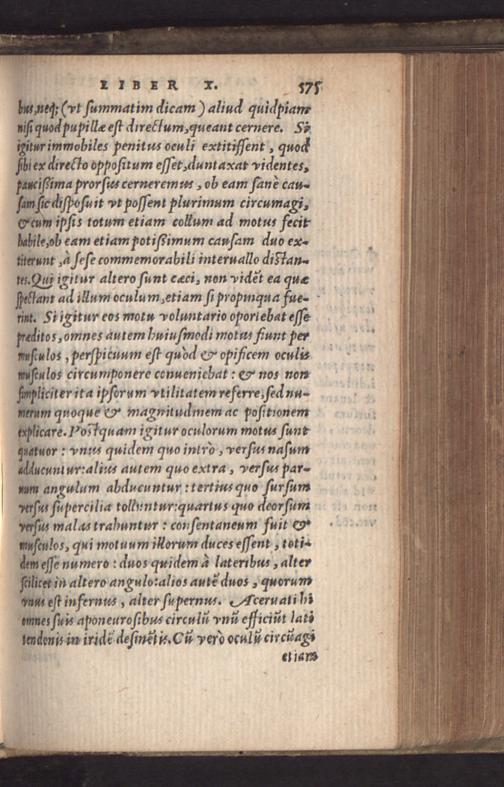 LIBER X. 575
bus, neq; (vt summatim dicam) aliud quidpiam
nisi quod pupillæ est directum, queant cernere. Si
igitur immobiles penitus oculi extitissent, quod
sibi ex directo oppositum esset, duntaxat videntes,
paucißima prorsus cerneremus, ob eam sanè cau-
sam sic disposuit vt possent plurimum circumagi,
& cum ipsis totum etiam collum ad motus fecit
habile, ob eam etiam potißimum causam duo ex-
titerunt, à sese commemorabili interuallo distan-
tes. Qui igitur altero sunt cæci, non vidẽt ea quæ
spectant ad illum oculum, etiam si propinqua fue-
rint. Si igitur eos motu voluntario oportebat esse
preditos, omnes autem huiusmodi motus fiunt per
musculos, perspicuum est quòd & opificem oculis
musculos circumponere conueniebat: & nos non
simpliciter ita ipsorum vtilitatem referre, sed nu-
merum quoque & magnitudinem ac positionem
explicare. Postquam igitur oculorum motus sunt
quatuor: vnus quidem quo intrò, versus nasum
adducuntur: alius autem quo extra, versus par-
uum angulum abducuntur: tertius quo sursum
versus supercilia tolluntur: quartus quo deorsum
versus malas trahuntur: consentaneum fuit &
musculos, qui motuum illorum duces essent, toti-
dem esse numero: duos quidem à lateribus, alter
scilicet in altero angulo: alios autẽ duos, quorum
vnus est infernus, alter supernus. Aceruati hi
omnes suis aponeurosibus circulũ vnũ efficiũt lati
tendonis in iridẽ desinẽtis. Cũ verò oculũ circũagi
etiam